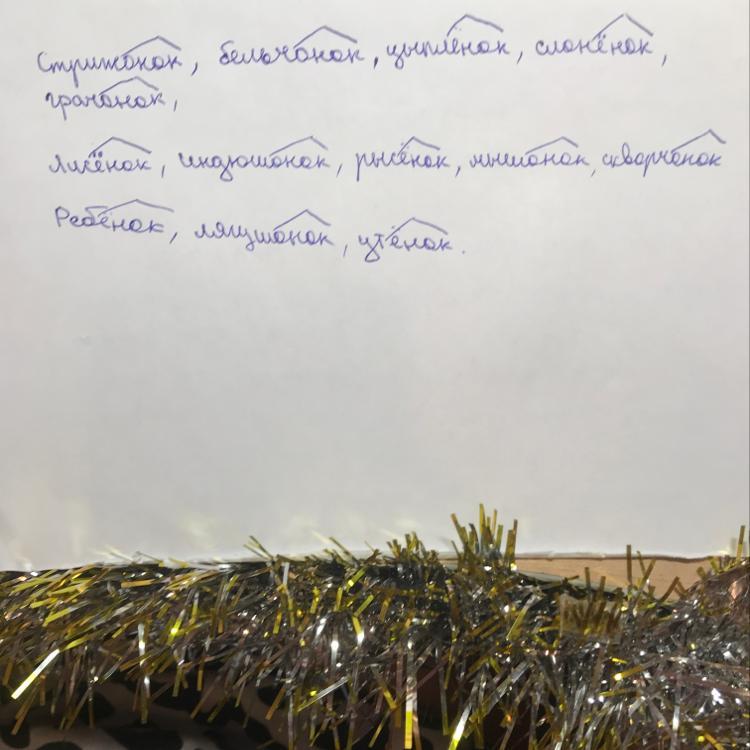 Стрижонок, бельчонок, цыплёнок, слонёнок,
грачонок,
лисёнок, индюшонок, рысёнок, мышонок, скворчонок
Ребёнок, лягушонок, утёнок.